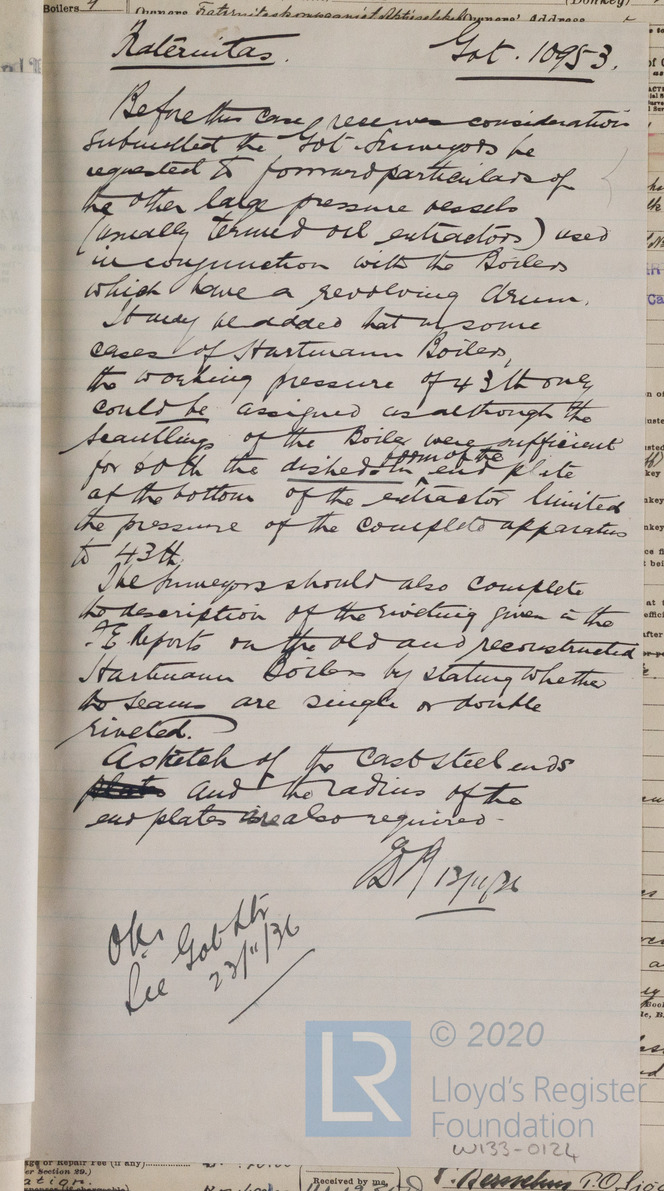 Boilers 4
(Donkey)
Owners' Address
Fraternitas. Got. 10953.
Before this case receives consideration
submitted the Got. Surveyors be
requested to forward particulars of
the other large pressure vessels
(usually termed oil extractors) used
in conjunction with the Boilers
which have a revolving drum.
It may be added that in some
cases of Hartmann Boilers,
the working pressure of 43 lb only
could be assigned as although the
scantlings of the Boiler were sufficient
for 60 lb the dished bottom end plate
at the bottom of the extractor limited
the pressure of the complete apparatus
to 43 lb.
The Surveyors should also complete
the description of the riveting given in the
F.E. Reports on the old and reconstructed
Hartmann Boilers by stating whether
the seams are single or double
riveted.
A sketch of the cast steel ends
and the radius of the
end plates are also required.
13/11/36
Ok.
See Got Ltr
23/11/36
LR
© 2020
Lloyd's Register
Foundation
W133-0124
age or Repair Fee (if any)
er Section 29.)
Received by me,